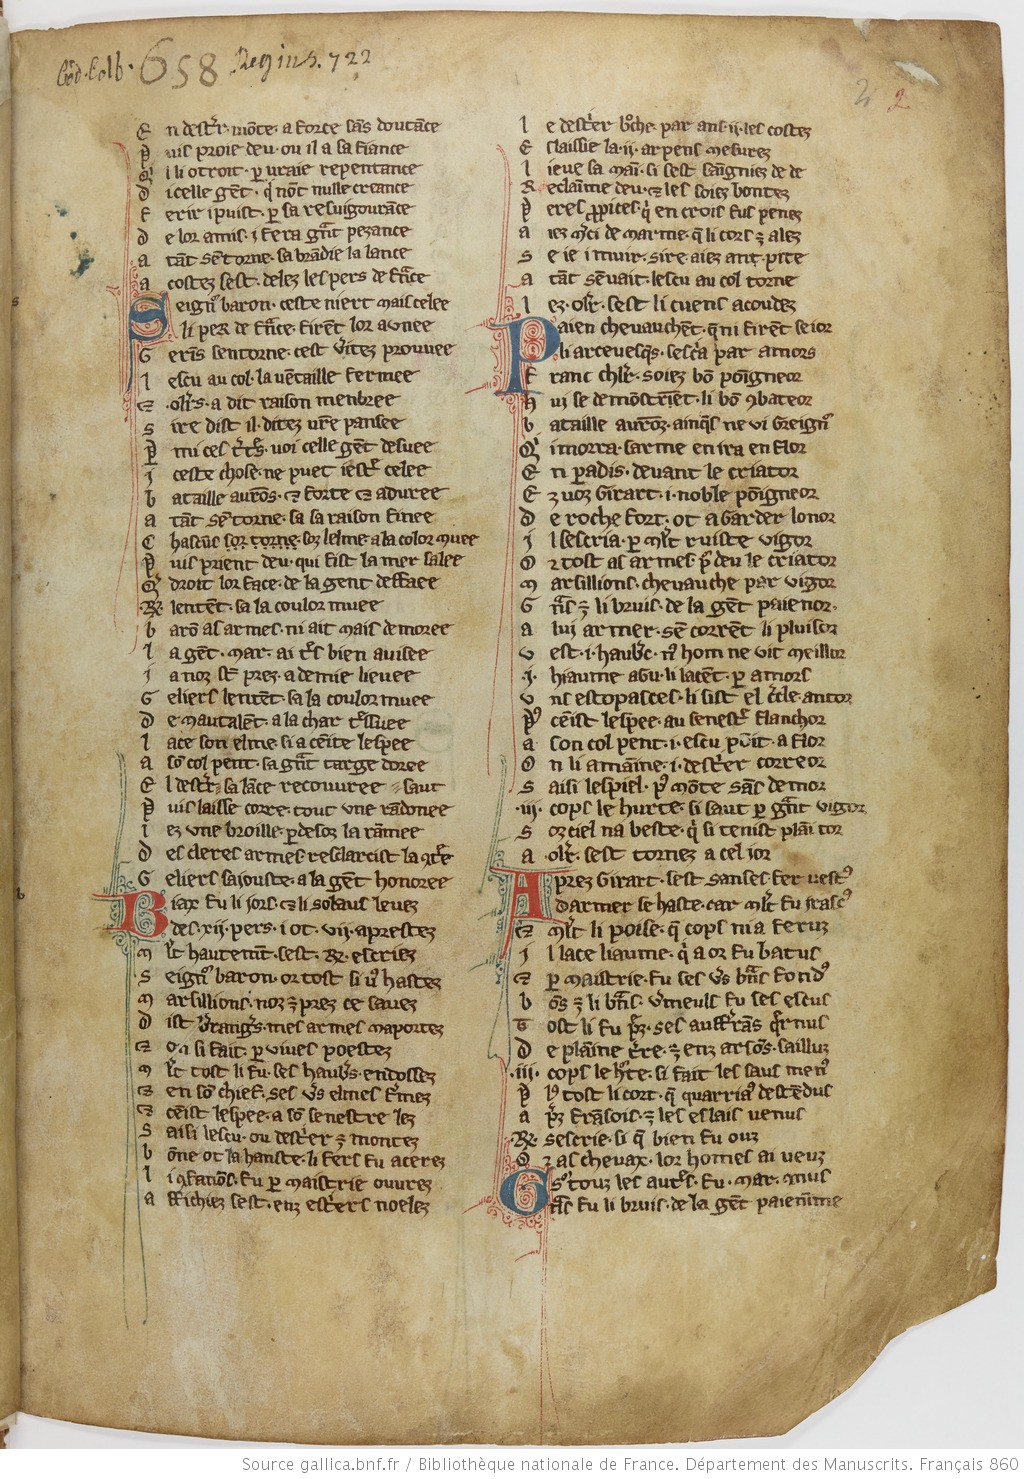 Cod. Colb. 658 Regius. 722
2 2
E n dest'r. mōte. a force sās doutāce
P uis proie deu. ou il a sa fiance
Q' l li otroit. p uraie repentance
D icelle gēt. q' nōt nulle creance
F erir i puist. p sa resuigourāce
D e lor amis. i fera gn̄t pezance
A tāt sē torne. sa brādie la lance
A costez sest. delez les pers de frāce
S eign' baron. ceste niert mais celee
li per de frāce. firēt lor auuee
G erīs sen torne. cest v'itez prouuee
L escu au col. la uētaille fermee
⁊ ol'rs. a dit raison menbree
S ire dist il. ditez ur̄e pansee
P mi ces t'r's. uoi celle gēt desuee
I ceste chose. ne puet iest'r celee
B ataille aurōs. ⁊ forte ⁊ aduree
A tāt sē torne. sa sa raison finee
C hascūs sor torne. soz lelme. a la color muee
P uis prient deu. qui fist la mer salee
Q' droit lor face. de la gent deffaee
R. lentēt. sa la coulor muee
B arō as armes. ni ait mais demoree
L a gēt. mar. ai t's bien auisee
I a noz st̄ prez. a demie lieuee
G eliers lentēt. sa la coulor muee
D e mautalēt. a la char t'ssuee
L ace son elme. si a cēite lespee
A sō col pent. sa gn̄t targe doree
E l dest'r. sa lāce recouuree saut
P uis laisse corre. tout vne rādonee
I ez vne broille. p desoz la rāmee
D es cleres armes. resclarcist la 9t'e
G eliers saiouste. a la gēt honoree
B iax fu li iors. ⁊ li solaus leuez
Des .xij. pers. i ot .vij. aprestez
M l't hautemēt. sest. R. escriez
S eign' baron. or tost si u' hastez
M arsillions. noz ē prez ce sauez
D ist b'rangiers. mes armes maportez
⁊ on si fait. p viues poestez
M l't tost li fu. ses haub's endossez
⁊ en sō chief. ses v's elmes f'mez
⁊ cēist lespee. a sō senestre lez
S aisi lescu. ou dest'er ē montez
B ōne ot la hanste. li fers fu acerez
L i 9fanōs. fu p maistrie ouurez
A ffichiez sest. enz est'ers noelez
L e dest'er b'oche. par ans .ij. les costez
E slaissie la .ij. arpens mesurez
L ieue sa mai. si sest saīgniez de de
R eclaime deu. ⁊ les soiez bontez
P eres p'pices. q' en crois fus penez
A iez m'ci de marme. q li cors ē alez
S e ie i muir. sire aiez ent pite
A tāt sē uait. lescu au col torne
L ez. ol'r. sest li cuens acoudez
P aien cheuauchēt. q ni firēt seior
li arceuesq's. sescria par amors
F ranc chl'r. soiez bō poīgneor
H ui se demōsterrēt. li bō 9bateor
B ataille aurōz. ainq's ne vi greign'
Q' i morra. sarme en ira en flor
E n paradis. deuant le criator
E ⁊ uoz Girart. i. noble poīgneor
D e roche fort. ot a garder lonor
I l sescria. p ml't ruiste vigor
O r tost as armes. p' deu le criator
M arsillions. cheuauche par vigor
G rās ē li bruis. de la gēt paienor
A lui armer. sē corrēt li pluisor
V est .i. haub'c. n' hom ne vit meillor
.I. hiaume agu. li lacēt. p amors
V ns estopasces. li sist el c'cle. antor
P' cēist lespee. au senest'r flanchor
A son col pent .i. escu paīt. a flor
O n li amaīne .i. dest'er correor
S aisi lespiel. p' mōte sans demor
.iij. cops le hurte. si saut p gn̄t vigor
S oz ciel na beste. q' si tenist plain tor
A ol'r. sest tornez a cel ior
A prez Girart. sest sanses fer vest'
Darmer se haste. car ml't fu irasc'
⁊ ml't li poise. q cops ni a feruz
I l lace liaume. q' a or fu batus
⁊ p maistrie. fu ses v's brās fondus
B ōs ē li brās. v'meuls fu ses escus
T ost li fu p'z. ses auff'rās q'rnus
D e plaine t're. ē enz arsōs. sailluz
.iij. cops le h'te. si fait les saus men'
P l' tost li cort. q quarriaus descēdus
A p'z frāsois. ē les eslais venus
R. sescrie. si q bien fu ouz
O r as cheuax. lor homes ai veuz
S' touz les autres. fu. mar. mus
G rās fu li bruis. de la gēt paiennime
s
b
Source gallica.bnf.fr / Bibliothèque nationale de France. Département des Manuscrits. Français 860